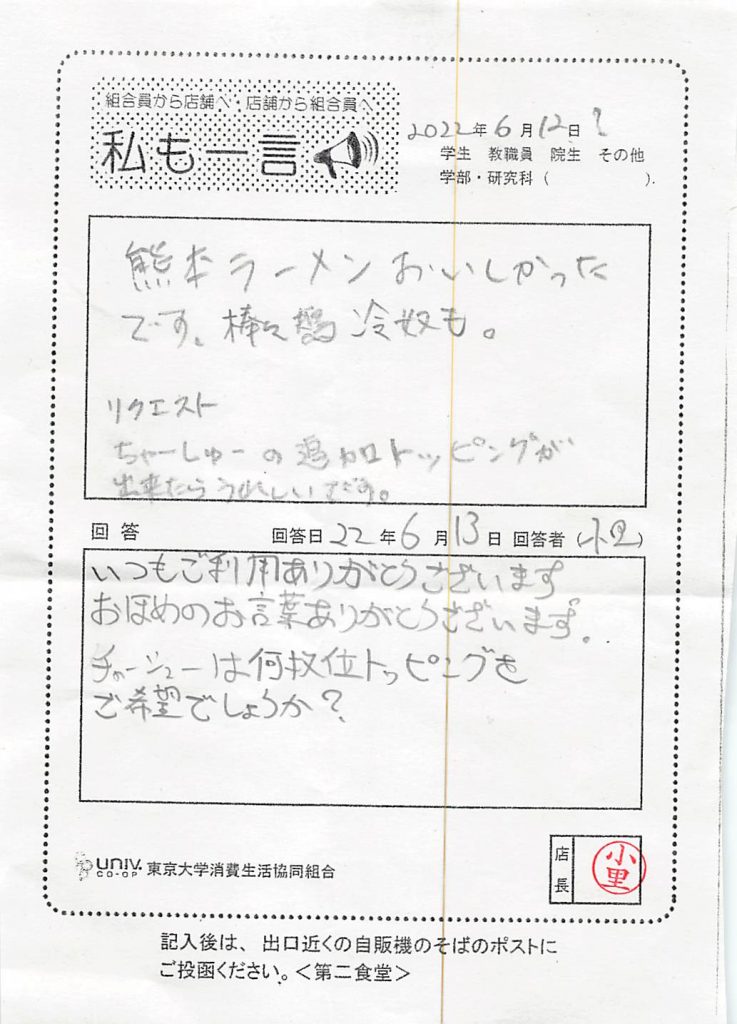 組合員から店舗へ・店舗から組合員へ
私も一言
2022年6月12日?
学生 教職員 院生 その他
学部・研究科 ( ).
熊本ラーメンおいしかった
です。棒々鶏冷奴も。
リクエスト
ちゃーしゅーの追加トッピングが
出来たらうれしいです。
回答 回答日22年6月13日 回答者(小里)
いつもご利用ありがとうございます
おほめのお言葉ありがとうございます。
チャーシューは何枚位トッピングを
ご希望でしょうか?
UNIV. CO-OP 東京大学消費生活協同組合
店長
小里
記入後は、出口近くの自販機のそばのポストに
ご投函ください。<第二食堂>